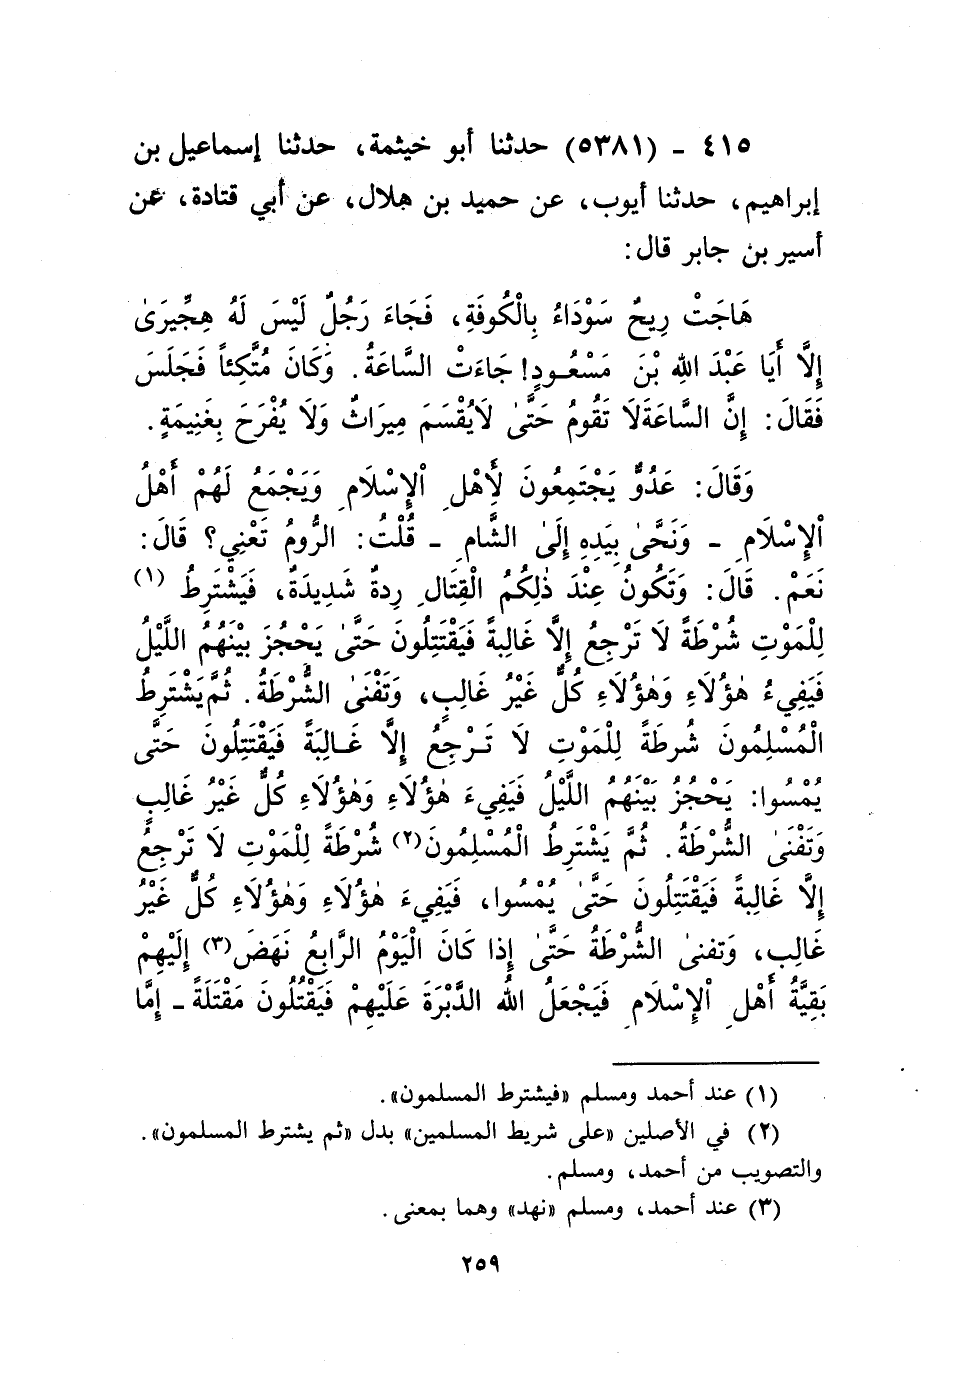 ٤١٥ ـ (٥٣٨١) حدثنا أبو خيثمة، حدثنا إسماعيل بن
إبراهيم، حدثنا أيوب، عن حميد بن هلال، عن أبي قتادة، عن
أسير بن جابر قال:
هَاجَتْ رِيحٌ سَوْدَاءُ بِالْكُوفَةِ، فَجَاءَ رَجُلٌ لَيْسَ لَهُ هِجِّيرَىٰ
إِلَّا أَيَا عَبْدَ اللهِ بْنَ مَسْعُودٍ! جَاءَتْ السَّاعَةُ. وَكَانَ مُتَّكِئاً فَجَلَسَ
فَقَالَ: إِنَّ السَّاعَةَ لَا تَقُومُ حَتَّىٰ لَا يُقْسَمَ مِيرَاثٌ وَلَا يُفْرَحَ بِغَنِيمَةٍ.
وَقَالَ: عَدُوٌّ يَجْتَمِعُونَ لِأَهْلِ الْإِسْلَامِ وَيَجْمَعُ لَهُمْ أَهْلُ
الْإِسْلَامِ ـ وَنَحَّىٰ بِيَدِهِ إِلَىٰ الشَّامِ ـ قُلْتُ: الرُّومُ تَعْنِي؟ قَالَ:
نَعَمْ. قَالَ: وَتَكُونُ عِنْدَ ذٰلِكُمُ الْقِتَالِ رِدةٌ شَدِيدَةٌ، فَيَشْتَرِطُ (١)
لِلْمَوْتِ شُرْطَةً لَا تَرْجِعُ إِلَّا غَالِبةً فَيَقْتَتِلُونَ حَتَّىٰ يَحْجُزَ بيْنَهُمُ اللَّيْلُ
فَيَفِيءُ هٰؤُلَاءِ وَهٰؤُلَاءِ كُلٌّ غَيْرُ غَالِبٍ، وَتَفْنَىٰ الشُّرْطَةُ. ثُمَّ يَشْتَرِطُ
الْمُسْلِمُونَ شُرطَةً لِلْمَوْتِ لَا تَرْجِعُ إِلَّا غَالِبَةً فَيَقْتَتِلُونَ حَتَّى
يُمْسُوا: يَحْجُزُ بَيْنَهُمُ اللَّيْلُ فَيَفِيءَ هٰؤُلَاءِ وَهٰؤُلَاءِ كُلٌّ غَيْرُ غَالِبٍ
وَتَفْنَىٰ الشُّرْطَةُ. ثُمَّ يَشْتَرِطُ الْمُسْلِمُونَ(٢) شُرْطَةً لِلْمَوْتِ لَا تَرْجِعُ
إِلَّا غَالِبةً فَيَقْتَتِلُونَ حَتَّىٰ يُمْسُوا، فَيَفِيءَ هٰؤُلَاءِ وَهٰؤُلَاءِ كُلٌّ غَيْرُ
غَالِبٍ، وَتفنىٰ الشُّرْطَةُ حَتَّىٰ إِذا كَانَ الْيَوْمُ الرَّابِعُ نَهَضَ(٣) إِلَيْهِمْ
بَقِيَّةُ أَهْلِ الْإِسْلَامِ فَيَجْعَلُ اللهُ الدَّبْرَةَ عَلَيْهِمْ فَيَقْتُلُونَ مَقْتَلَةً ـ إِمَّا
(١) عند أحمد ومسلم «فيشترط المسلمون».
(٢) في الأصلين «على شريط المسلمين» بدل «ثم يشترط المسلمون».
والتصويب من أحمد، ومسلم.
(٣) عند أحمد، ومسلم «نهد» وهما بمعنى.
٢٥٩